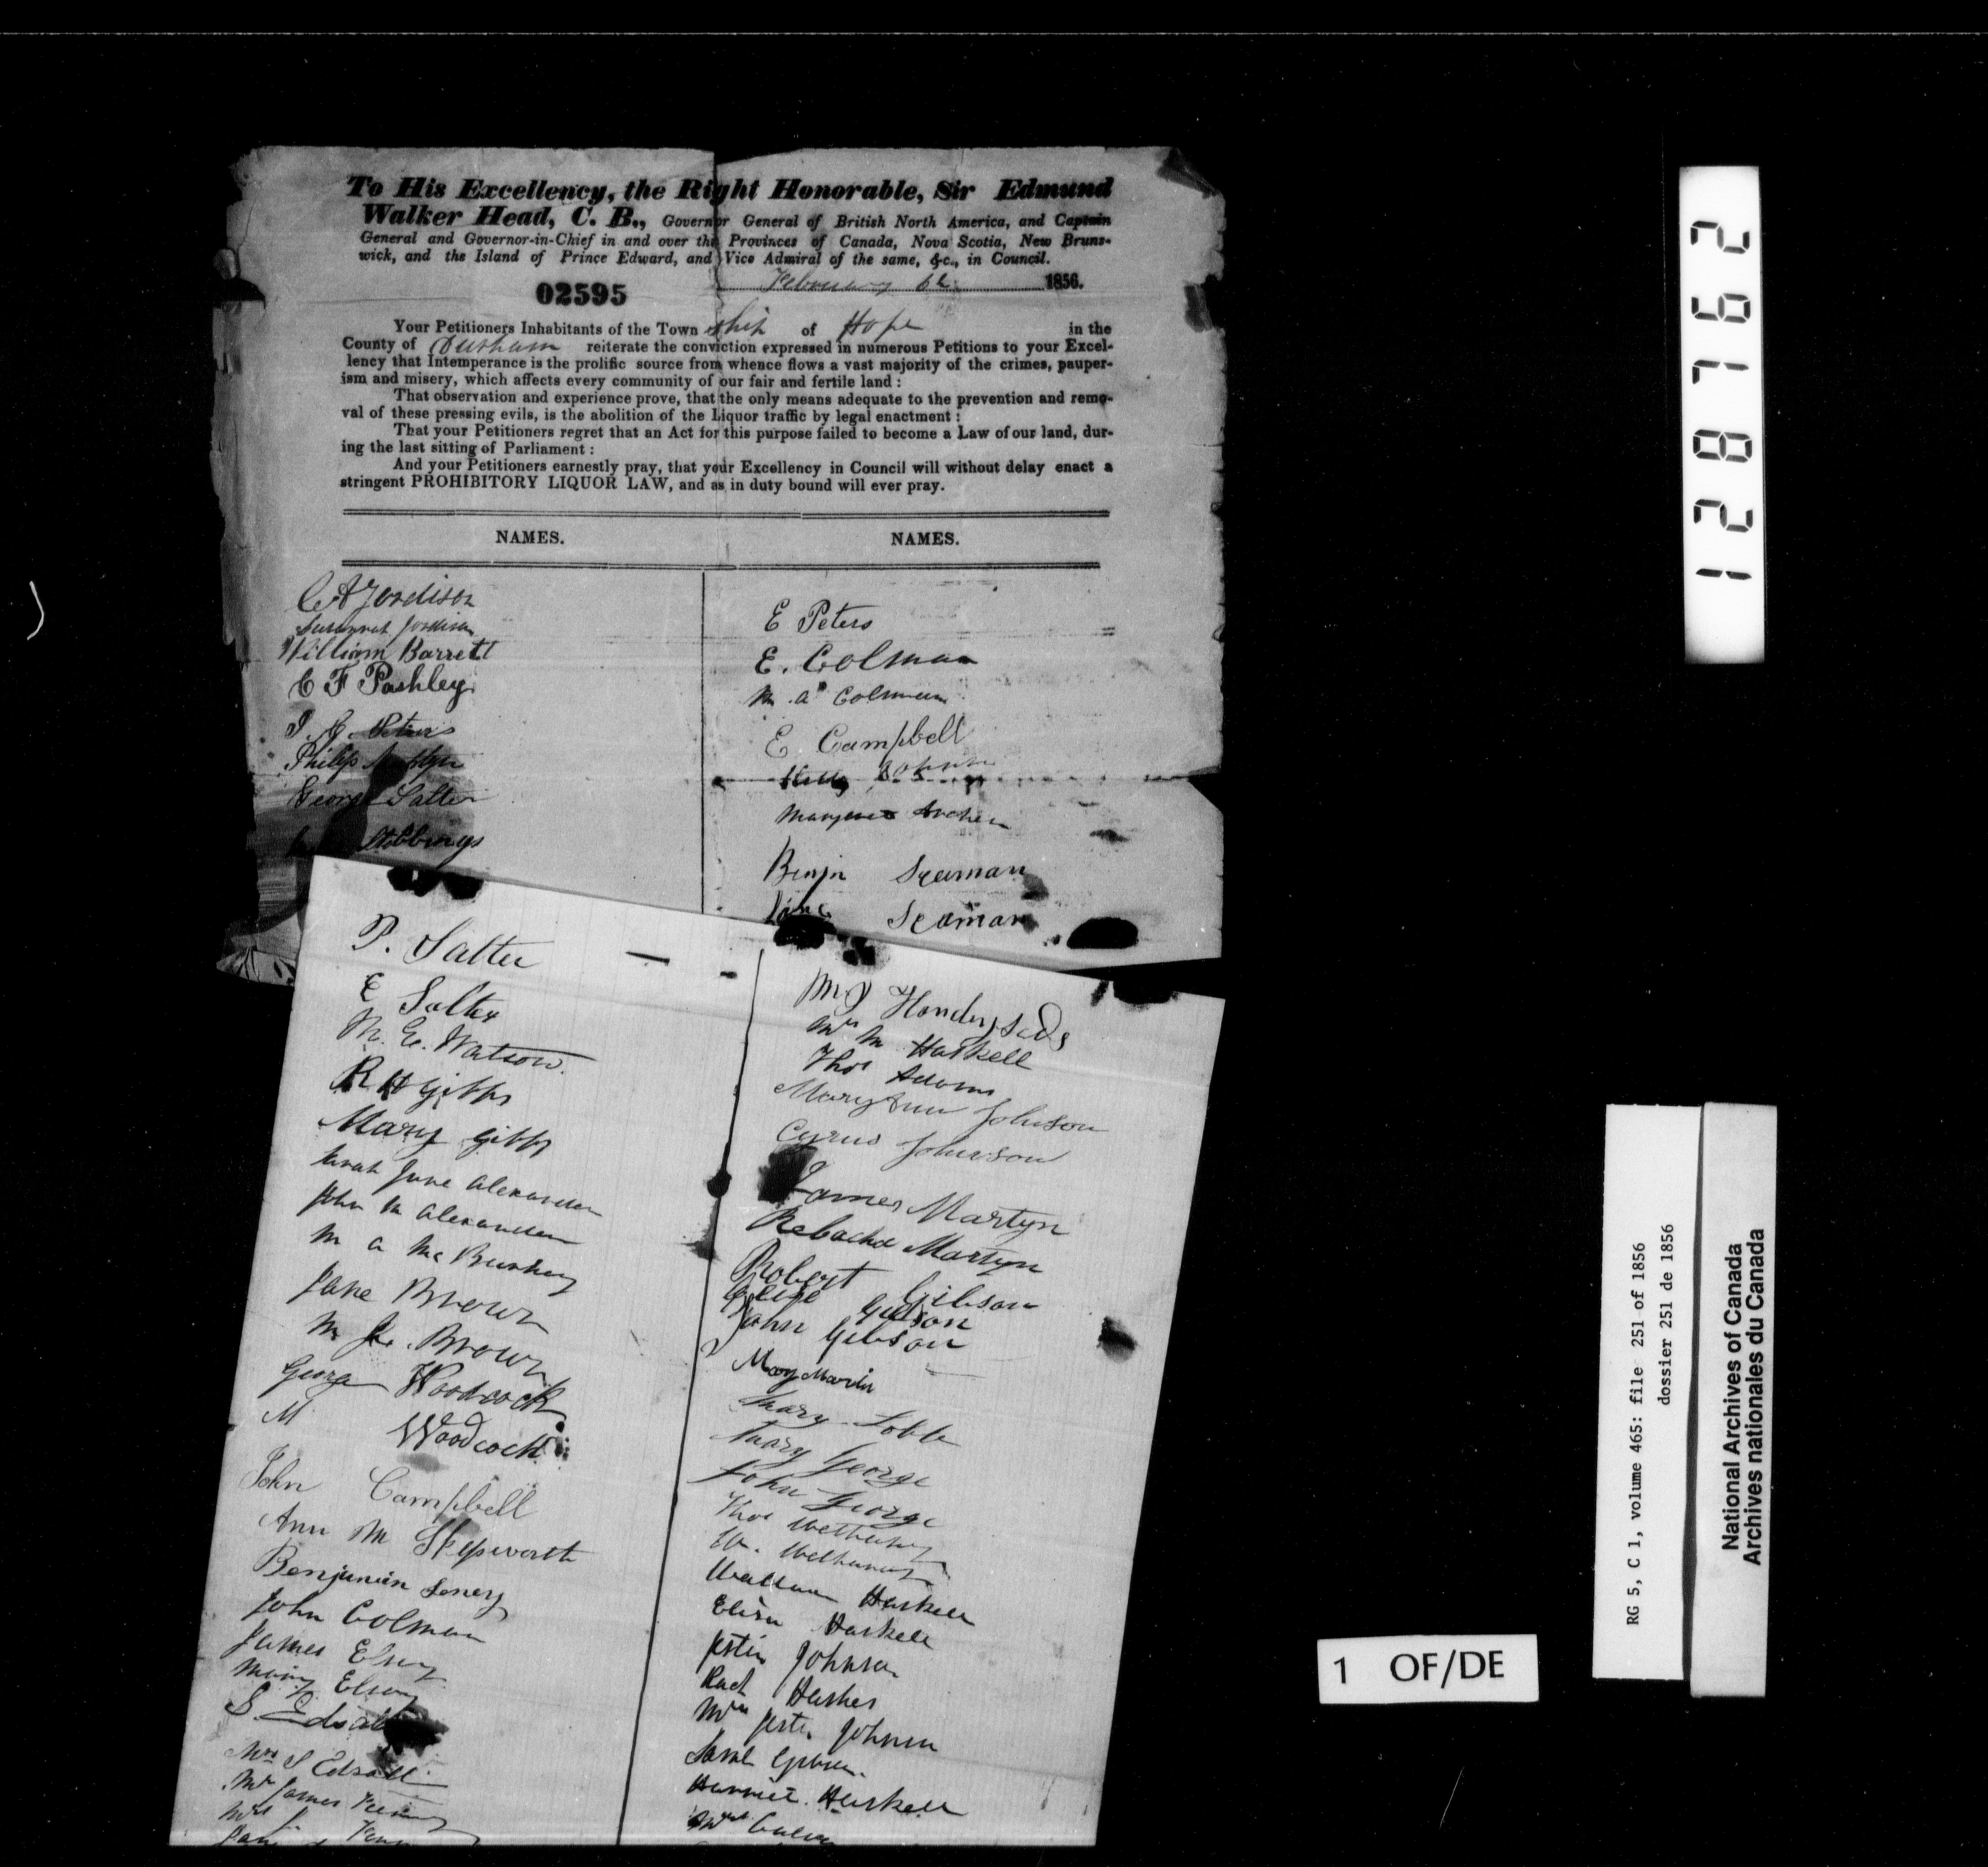 To His Excellency, the Right Honorable, Sir Edmund
Walker Head, C. B., Governor General of British North America, and Captain
General and Governor-in-Chief in and over the Provinces of Canada, Nova Scotia, New Bruns-
wick, and the Island of Prince Edward, and Vice Admiral of the same, &c., in Council.
February 1856.
02595
Your Petitioners Inhabitants of the Town ship of Hope in the
County of Durham reiterate the conviction expressed in numerous Petitions to your Excel-
lency that Intemperance is the prolific source from whence flows a vast majority of the crimes, pauper-
ism and misery, which affects every community of our fair and fertile land :
That observation and experience prove, that the only means adequate to the prevention and remo-
val of these pressing evils, is the abolition of the Liquor traffic by legal enactment :
That your Petitioners regret that an Act for this purpose failed to become a Law of our land, dur-
ing the last sitting of Parliament :
And your Petitioners earnestly pray, that your Excellency in Council will without delay enact a
stringent PROHIBITORY LIQUOR LAW, and as in duty bound will ever pray.
NAMES.
C A Jordison
Susannah Jordison
William Barrett
E F Pashley
Philip
George Salter
Stebbings
NAMES.
E Peters
E. Colman
M. A. Colman
E Campbell
Margaret Archer
Benjn Seaman
Jane Seaman
P. Salter
E Salter
M. E. Watson.
R H Gibbs
Mary Gibbs
Sarah Jane Alexander
John M Alexander
M A Mc
Jane Brown
M J. Brown
George Woodcock
M Woodcock
John Campbell
Ann M Skepworth
Benjamin
John Colman
James Elsey
Mary Elsey
S. Edsall
Mrs S Edsall
Mr James
Mrs J.
M
Mrs M Haskell
Thos Adams
Mary Ann Johnson
Cyrus Johnson
James Martyn
Rebacha Martyn
Robert Gibson
Gibson
John Gibson
Mary Martin
Mary Lobb
Mary George
John George
Thos
W.
William Haskell
Eliza Haskell
Johnson
Mrs Johnson
Sarah
Harriet Haskell
Mrs
128762
1 OF/DE
RG 5, C 1, volume 465: file 251 of 1856
dossier 251 de 1856
National Archives of Canada
Archives nationales du Canada